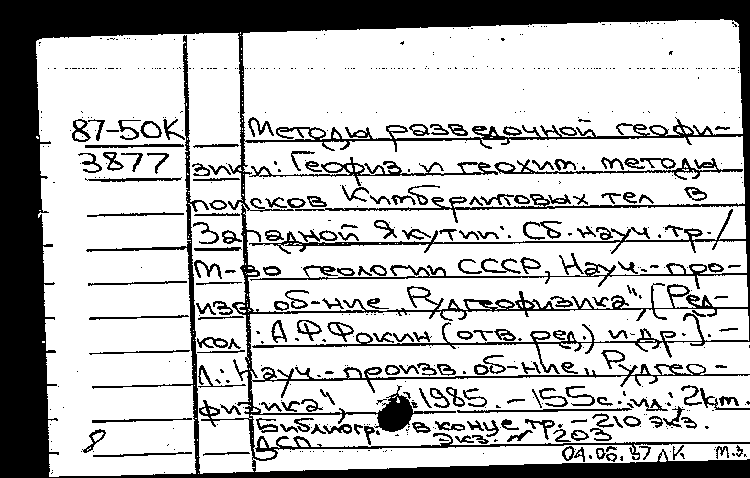 87-50К Методы разведочной геофи-
3877 зики: Геофиз. и геохим. методы
поисков Кимберлитовых тел в
Западной Якутии: Сб. науч. тр./
М-во геологии СССР, Науч.-про-
изв. об-ние „Рудгеофизика", [Ред-
кол.: А.Ф.Фокин (отв. ред.) и др.]. –
Л.: Науч.-произв. об-ние „Рудгео-
физика", 1985. – 155 с.: ил.; 21 см.
Библиогр. в конце тр. – 210 экз.
ДСП. Экз. № 1203
04.06.87 ЛК М.З.